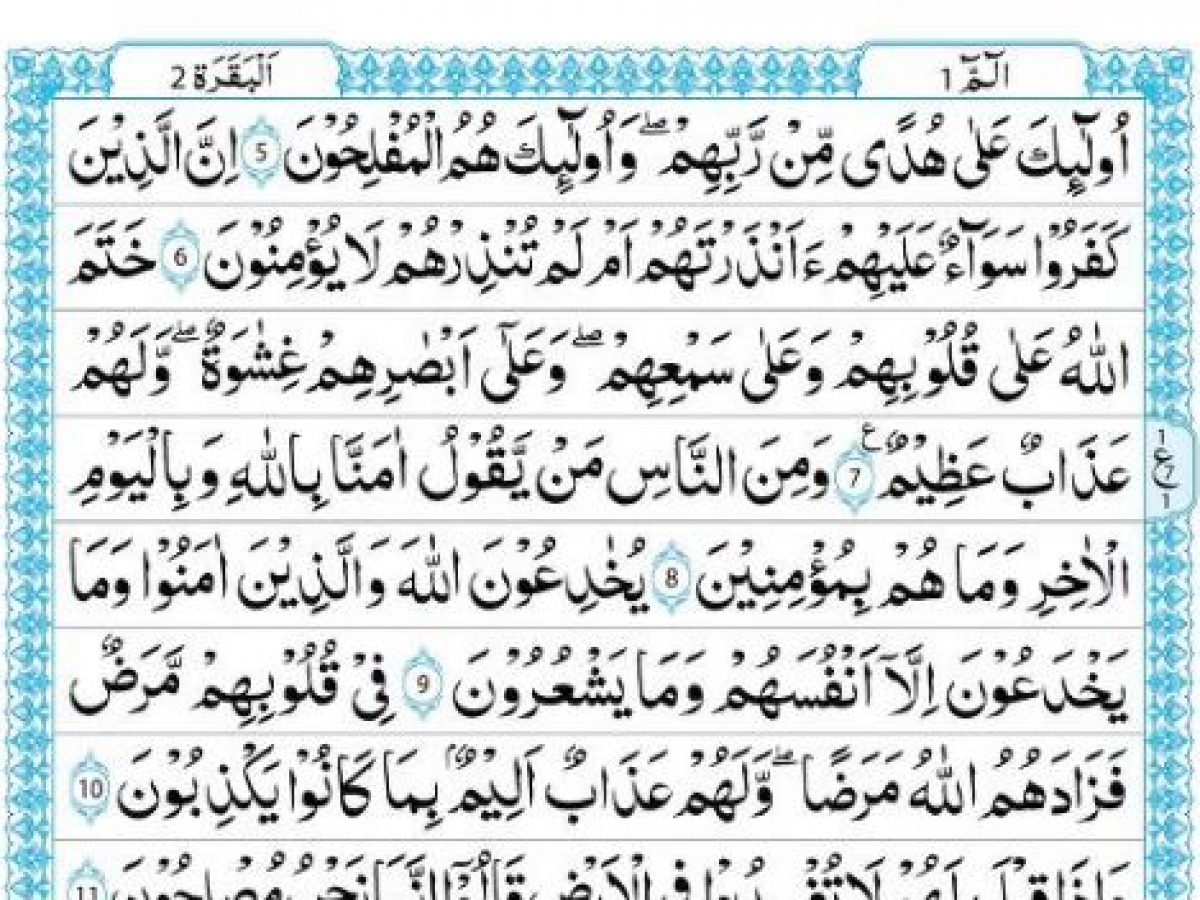 الٓمّٓ 1
اَلْبَقَرَة 2
اُولٰٓئِكَ عَلٰى هُدًى مِّنْ رَّبِّهِمْ ۖ وَاُولٰٓئِكَ هُمُ الْمُفْلِحُوْنَ 5 اِنَّ الَّذِيْنَ
كَفَرُوْا سَوَآءٌ عَلَيْهِمْ ءَاَنْذَرْتَهُمْ اَمْ لَمْ تُنْذِرْهُمْ لَا يُؤْمِنُوْنَ 6 خَتَمَ
اللّٰهُ عَلٰى قُلُوْبِهِمْ وَعَلٰى سَمْعِهِمْ ۖ وَعَلٰٓى اَبْصٰرِهِمْ غِشٰوَةٌ ۖ وَّلَهُمْ
عَذَابٌ عَظِيْمٌ ع 7 وَمِنَ النَّاسِ مَنْ يَّقُوْلُ اٰمَنَّا بِاللّٰهِ وَبِالْيَوْمِ
1
ع
7
1
الْاٰخِرِ وَمَا هُمْ بِمُؤْمِنِيْنَ 8 يُخٰدِعُوْنَ اللّٰهَ وَالَّذِيْنَ اٰمَنُوْا وَمَا
يَخْدَعُوْنَ اِلَّآ اَنْفُسَهُمْ وَمَا يَشْعُرُوْنَ 9 فِيْ قُلُوْبِهِمْ مَّرَضٌ
فَزَادَهُمُ اللّٰهُ مَرَضًا ۖ وَّلَهُمْ عَذَابٌ اَلِيْمٌۢ بِمَا كَانُوْا يَكْذِبُوْنَ 10
وَاِذَا قِيْلَ لَهُمْ لَا تُفْسِدُوْا فِى الْاَرْضِ قَالُوْٓا اِنَّمَا نَحْنُ مُصْلِحُوْنَ 11